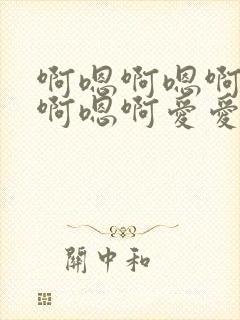 啊嗯啊嗯啊
啊嗯啊爱爱
關中和